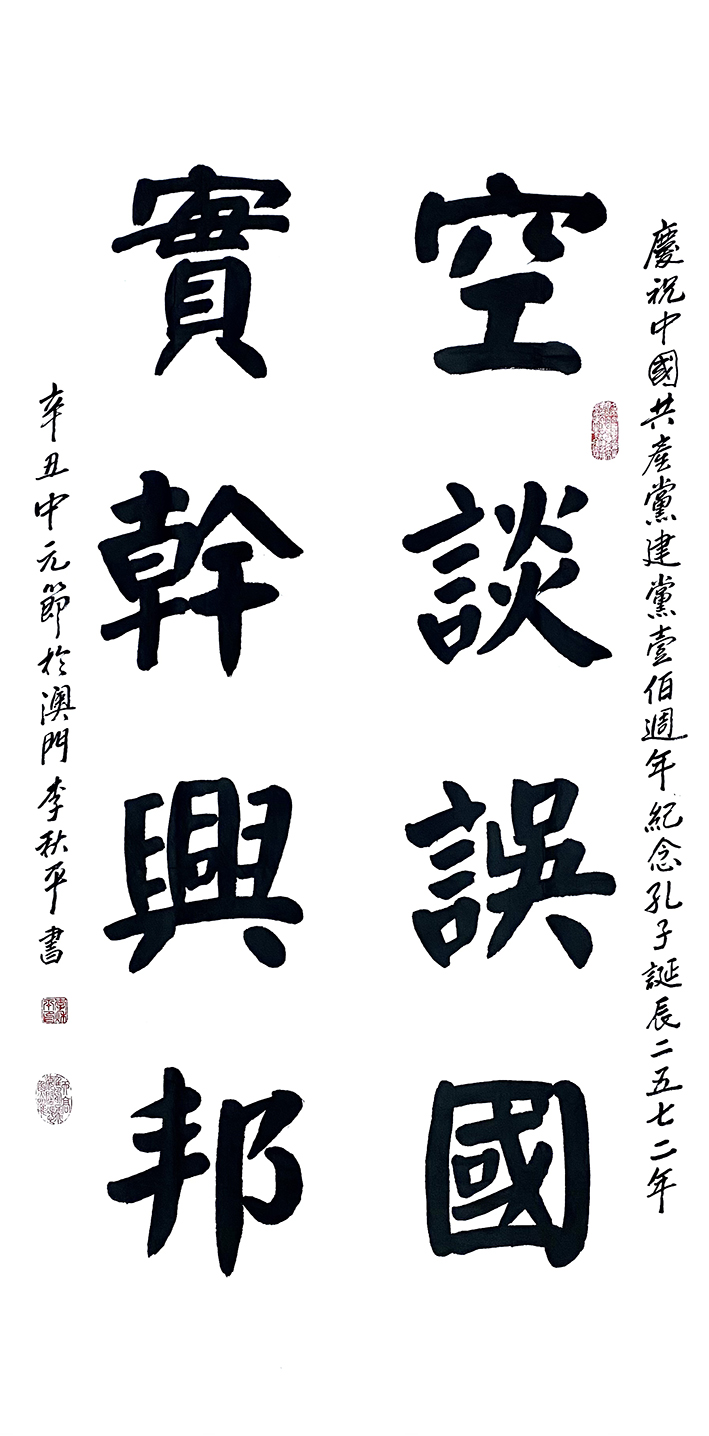 慶祝中國共產黨建黨壹佰週年紀念孔子誕辰二五七二年
空談誤國
實幹興邦
辛丑中元節於澳門李秋平書